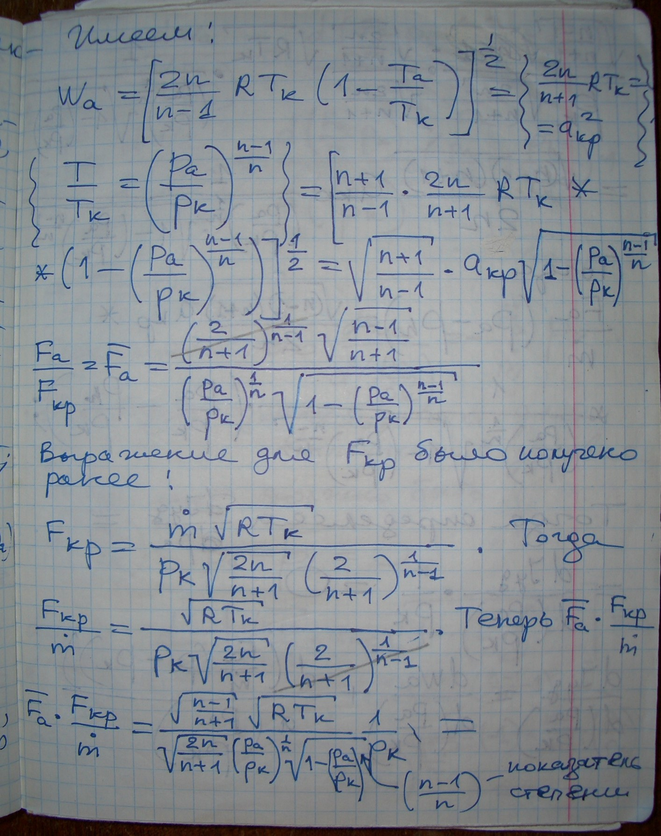 Имеем!
Wa = [2n/(n-1) RTк (1 - Ta/Tк)]^(1/2) = {2n/(n+1) RTк = = a²кр}
{T/Tк = (pa/pк)^((n-1)/n)} = [(n+1)/(n-1) · 2n/(n+1) RTк *
* (1 - (pa/pк)^((n-1)/n))]^(1/2) = √((n+1)/(n-1)) · aкр √(1 - (pa/pк)^((n-1)/n))
Fa/Fкр = F̅a = ((2/(n+1))^(1/(n-1)) √((n-1)/(n+1))) / ((pa/pк)^(1/n) √(1 - (pa/pк)^((n-1)/n)))
Выражение для Fкр было получено
ранее!
Fкр = (ṁ √(RTк)) / (pк √(2n/(n+1)) (2/(n+1))^(1/(n-1))) . Тогда
Fкр/ṁ = √(RTк) / (pк √(2n/(n+1)) (2/(n+1))^(1/(n-1))) . Теперь F̅a · Fкр/ṁ
F̅a · Fкр/ṁ = (√((n-1)/(n+1)) √(RTк)) / (√(2n/(n+1)) (pa/pк)^(1/n) √(1 - (pa/pк))) 1/pк =
((n-1)/n) - показатель
степени